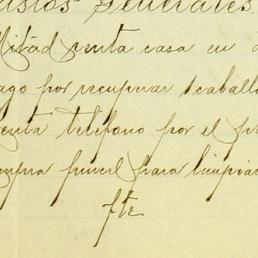 Gastos Generales
Mitád renta casa en
Pago por recuperar 1 caballo
renta teléfono por el
compra pincel para limpiar
fte